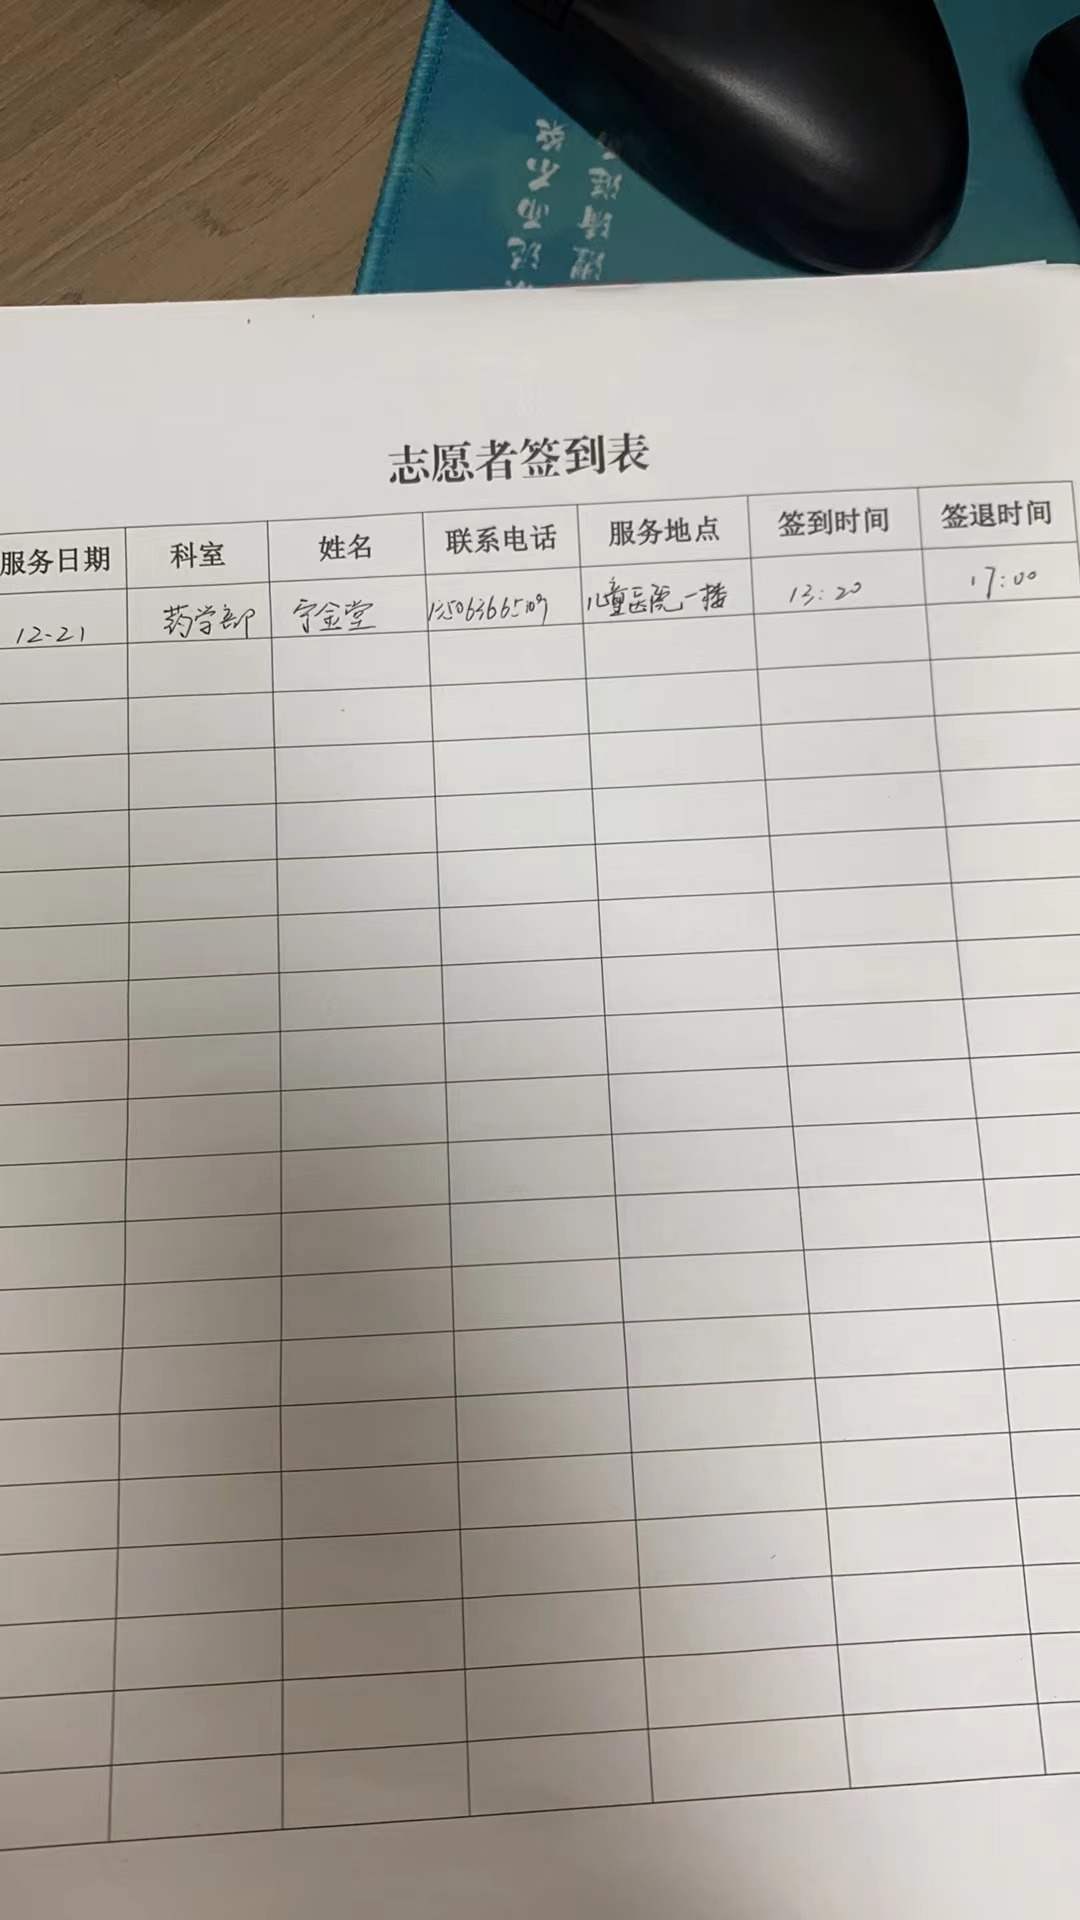 志愿者签到表
服务日期 科室 姓名 联系电话 服务地点 签到时间 签退时间
12-21 药学部 宁金堂 儿童医院一楼 13:20 17:00